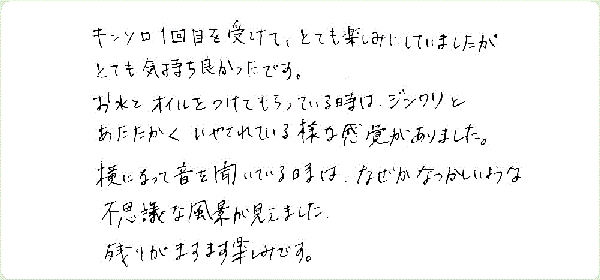 キンソロ1回目を受けて、とても楽しみにしていましたが
とても気持ち良かったです。
お水とオイルをつけてもらっている時は、ジンワリと
あたたかくいやされている様な感覚がありました。
横になって音を聞いている時は、なぜかなつかしいような
不思議な風景が見えました。
残りがますます楽しみです。